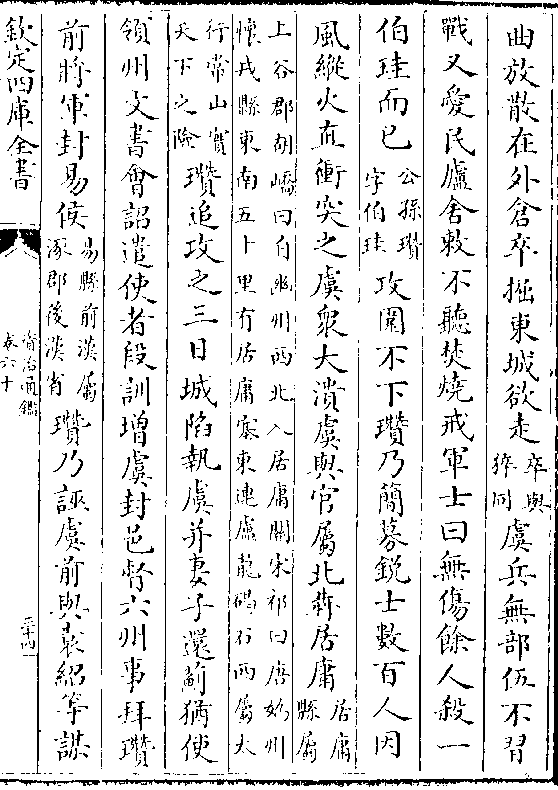 曲放散在外倉卒掘東城欲走卒與猝同虞兵無部伍不習
戰又愛民廬舍敕不聽焚燒戒軍士曰無傷餘人殺一
伯珪而已公孫瓚字伯珪攻圍不下瓚乃簡募銳士數百人因
風縱火直衝突之虞衆大潰虞與官屬北奔居庸居庸縣屬
上谷郡胡嶠曰自幽州西北入居庸關宋祁曰唐媯州
懷戎縣東南五十里有居庸塞東連盧龍碣石西屬太
行常山實天下之險瓚追攻之三日城陷執虞并妻子還薊猶使
領州文書會詔遣使者段訓增虞封邑督六州事拜瓚
前將軍封易侯易縣前漢屬涿郡後漢省瓚乃誣虞前與袁紹等謀
欽定四庫全書
資治通鑑
卷六十
二十四